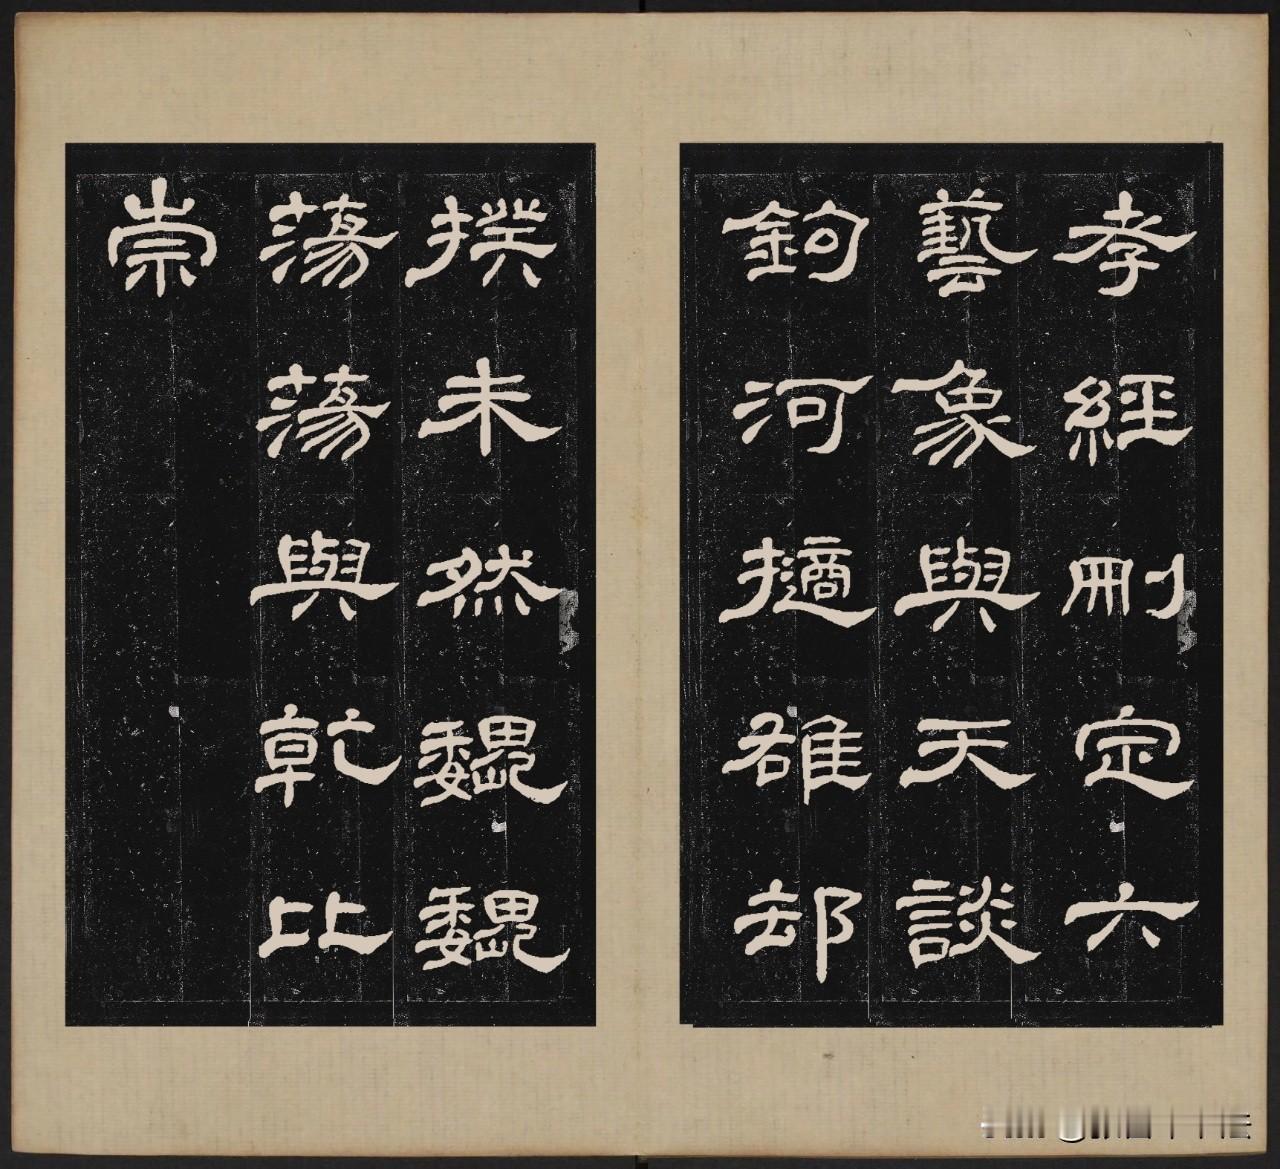 孝經刪定六
藝象與天談
鉤河擿雒却
揆未然巍巍
蕩蕩與乾比
崇